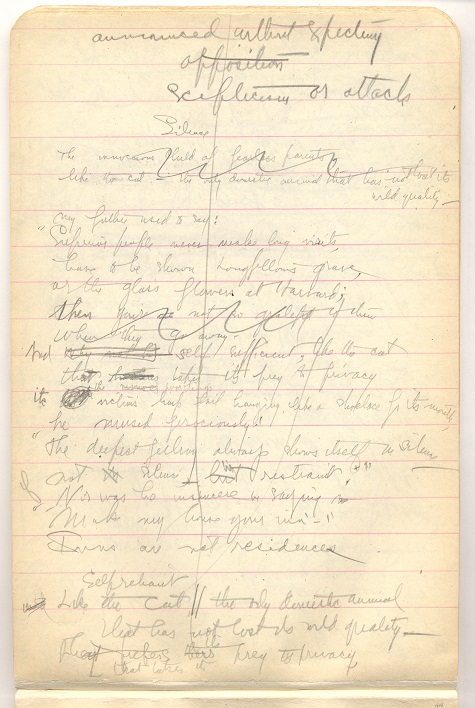 announced without expecting
opposition
scepticism or attacks
Silence
The innocuous child of fearless parents
like the cat – the only domestic animal that has not lost its
wild quality –
My father used to say:
"Superior people never make long visits,
have to be shown Longfellows grave,
or the glass flowers at Harvard;
then you're not so grateful of them
when they go away.
And self sufficient, like the cat
that takes its prey to privacy
its the mouse's
victim's limp tail hanging like a shoelace fr its mouth,
he mused ferociously.
"The deepest feeling always shows itself in silence
not in silence – but restraint."
"Nor was he insincere in saying
Make my house your inn –"
Inns are not residences
Selfreliant
Like the cat // the only domestic animal
that has not lost its wild quality –
that prefers prey to privacy
that takes it